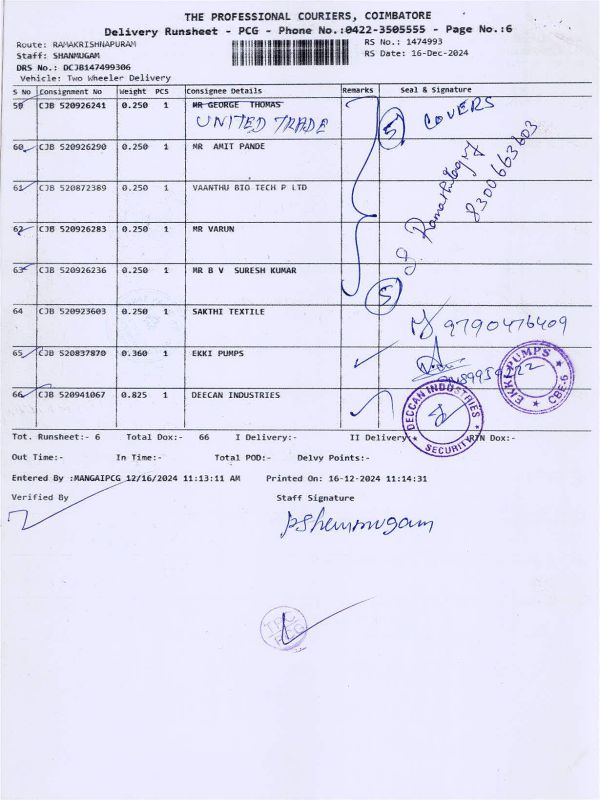 THE PROFESSIONAL COURIERS, COIMBATORE
Delivery Runsheet - PCG - Phone No.:0422-3505555 - Page No.:6
Route: RAMAKRISHNAPURAM
RS No.: 1474993
Staff: SHANMUGAM
RS Date: 16-Dec-2024
DRS No.: DCJB147499306
Vehicle: Two Wheeler Delivery
S No Consignment No Weight PCS Consignee Details Remarks Seal & Signature
59 CJB 520926241 0.250 1 MR GEORGE THOMAS
UNITED TRADE
5 COVERS
60 CJB 520926290 0.250 1 MR AMIT PANDE
8300663603
61 CJB 520872389 0.250 1 VAANTHU BIO TECH P LTD
62 CJB 520926283 0.250 1 MR VARUN
63 CJB 520926236 0.250 1 MR B V SURESH KUMAR
5
64 CJB 520923603 0.250 1 SAKTHI TEXTILE
9790476409
65 CJB 520837870 0.360 1 EKKI PUMPS
EKKI PUMPS CBE-6
66 CJB 520941067 0.825 1 DEECAN INDUSTRIES
DECCAN INDUSTRIES SECURITY
Tot. Runsheet:- 6 Total Dox:- 66 I Delivery:- II Delivery:- RTN Dox:-
Out Time:- In Time:- Total POD:- Delvy Points:-
Entered By :MANGAIPCG 12/16/2024 11:13:11 AM Printed On: 16-12-2024 11:14:31
Verified By Staff Signature
PShanmugam